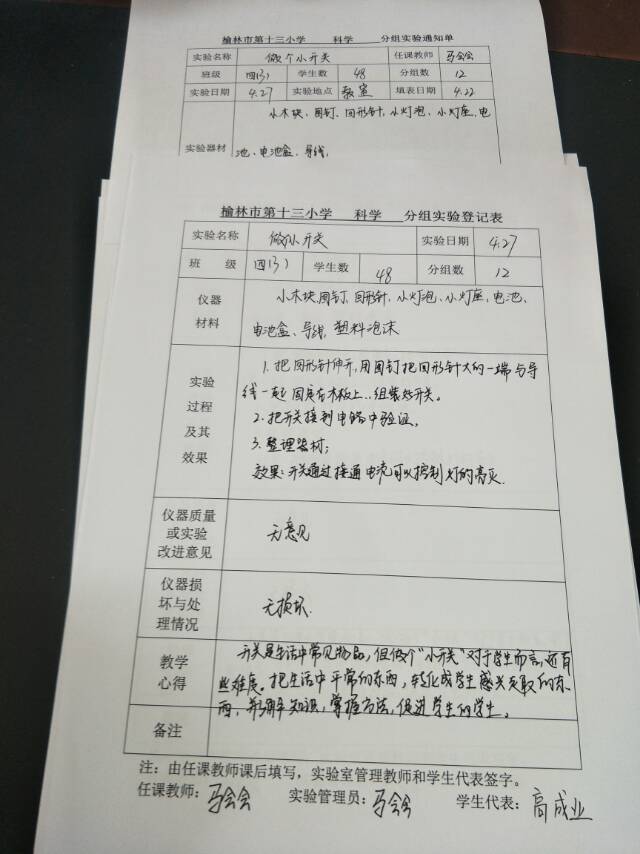 榆林市第十三小学 科学 分组实验通知单
实验名称 做个小开关 任课教师 马会会
班级 四(3) 学生数 48 分组数 12
实验日期 4.27 实验地点 教室 填表日期 4.22
小木块、图钉、回形针、小灯泡、小灯座、电
实验器材 池、电池盒、导线,
榆林市第十三小学 科学 分组实验登记表
实验名称 做个小开关 实验日期 4.27
班 级 四(3) 学生数 48 分组数 12
仪器 小木块、图钉、回形针、小灯泡、小灯座、电池、
材料 电池盒、导线、塑料泡沫
1.把回形针伸开,用图钉把回形针大的一端与导
实验 线一起固定在木板上..组装好开关。
过程 2.把开关接到电路中验证。
及其 3.整理器材;
效果 效果:开关通过接通电流可以控制灯的亮灭.
仪器质量
或实验 无意见
改进意见
仪器损
坏与处 无损坏.
理情况
教学 开关是生活中常见物品,但做个“小开关”对于学生而言,还有
心得 些难度。把生活中平常的东西,转化成学生感兴趣的东
西,并理解知识,掌握方法,促进学生的学生。
备注
注:由任课教师课后填写,实验室管理教师和学生代表签字。
任课教师:马会会 实验管理员:马会会 学生代表:高成业